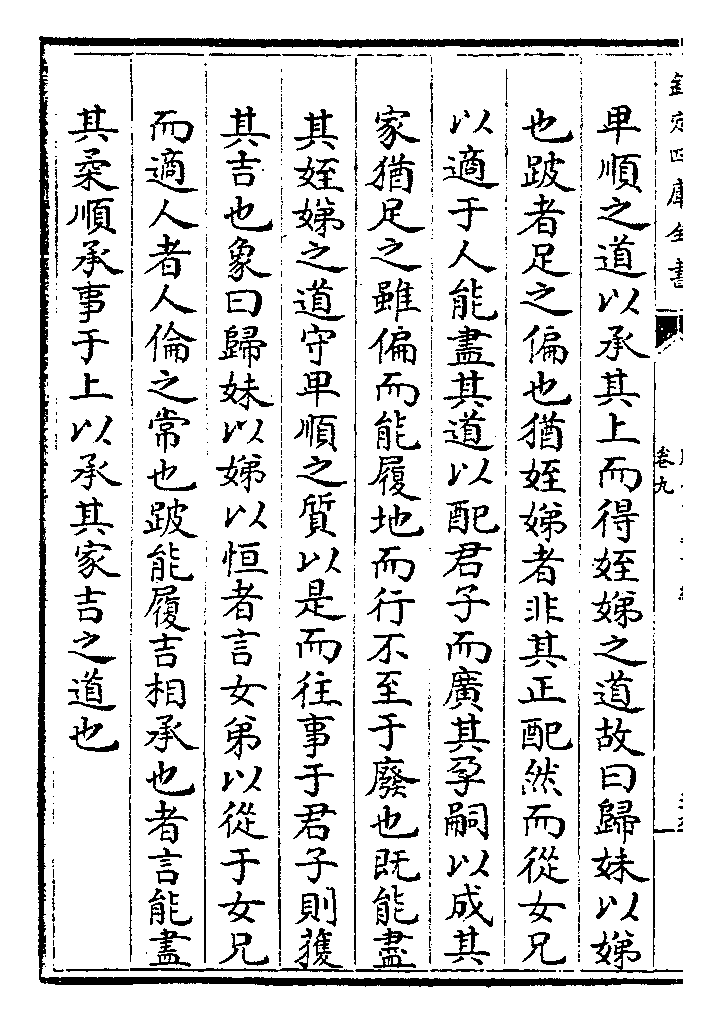 欽定四庫全書
卷九
卑順之道以承其上而得姪娣之道故曰歸妹以娣
也跛者足之偏也猶姪娣者非其正配然而從女兄
以適于人能盡其道以配君子而廣其孕嗣以成其
家猶足之雖偏而能履地而行不至于廢也既能盡
其姪娣之道守卑順之質以是而往事于君子則獲
其吉也象曰歸妹以娣以恒者言女弟以從于女兄
而適人者人倫之常也跛能履吉相承也者言能盡
其柔順承事于上以承其家吉之道也